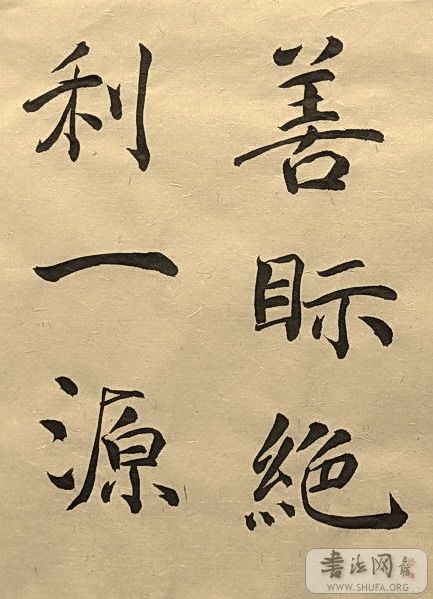 善眎絶
利一源
書法网
WWW.SHUFA.ORG